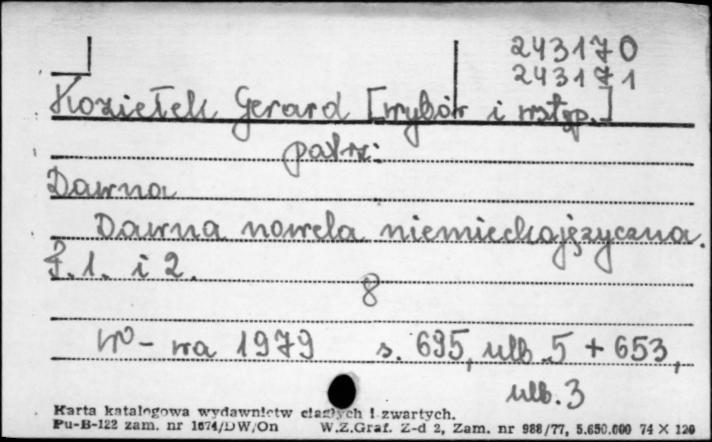 243170
243171
Koziełek Gerard [wybór i wstęp.]
patrz:
Dawna
Dawna nowela niemieckojęzyczna.
T.1. i 2.
8
W-wa 1979 s. 695, ulb. 5 + 653,
ulb. 3
Karta katalogowa wydawnictw ciągłych i zwartych.
Pu-B-122 zam. nr 1674/DW/On W.Z.Graf. Z-d 2, Zam. nr 988/77, 5.650.000 74 X 120